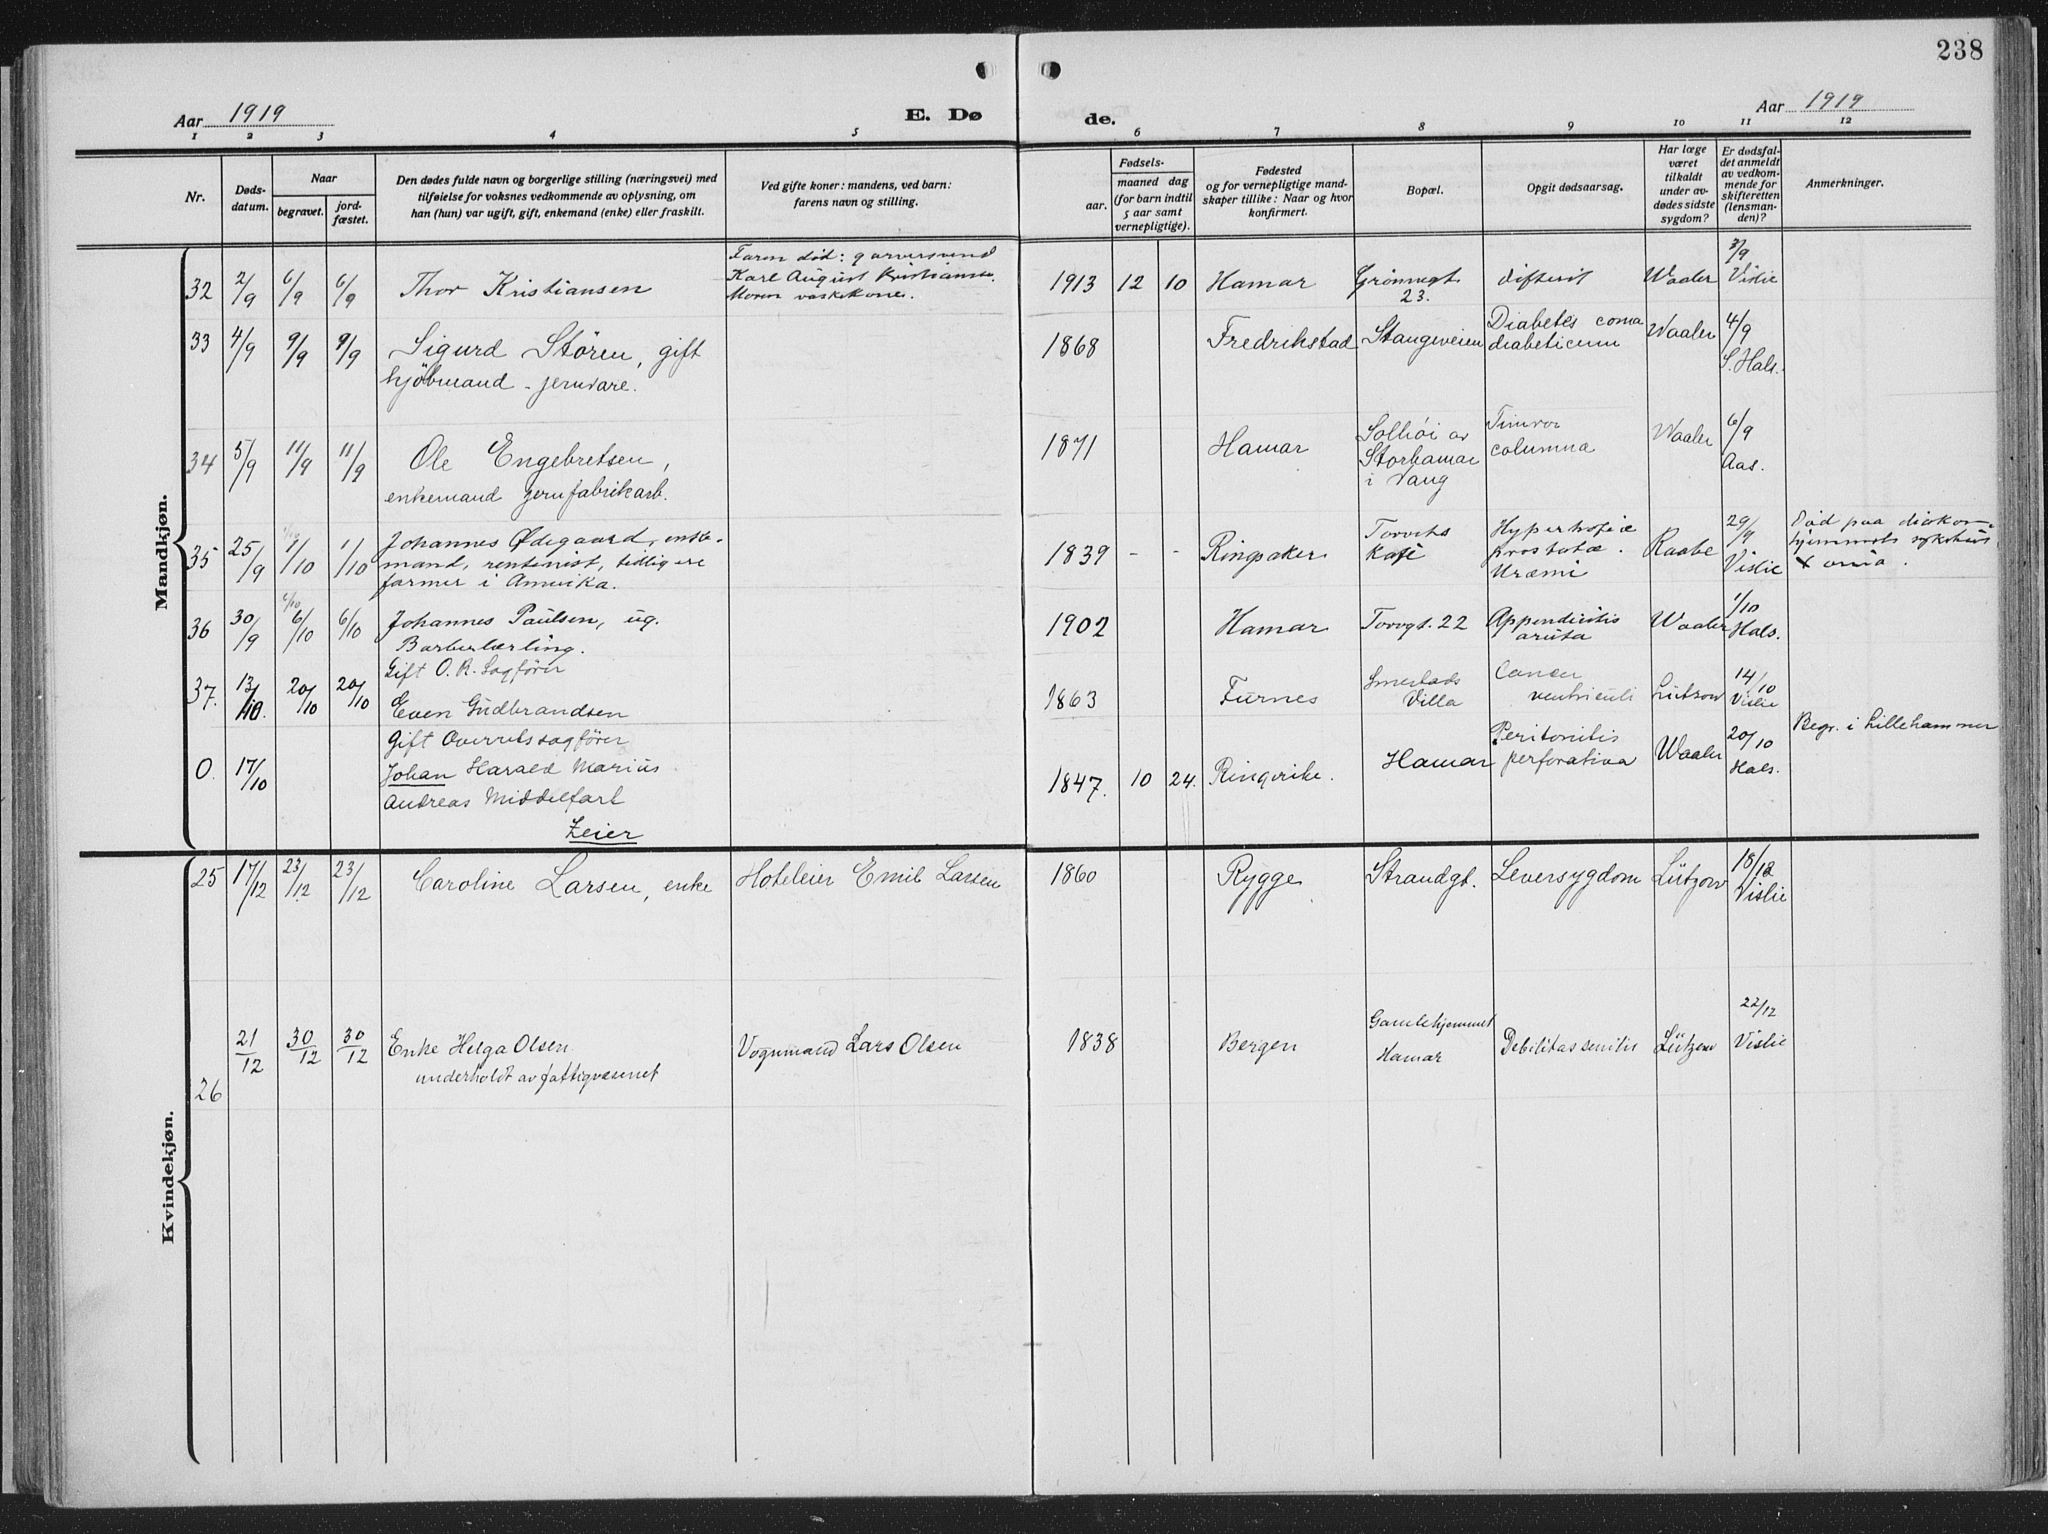 238
Aar 1919
E. Dø
de.
Aar 1919
1 2 3 4 5 6 7 8 9 10 11 12
Nr.
Døds-
datum.
Naar
begravet.
jord-
fæstet.
Den dødes fulde navn og borgerlige stilling (næringsvei) med
tilføielse for voksnes vedkommende av oplysning, om
han (hun) var ugift, gift, enkemand (enke) eller fraskilt.
Ved gifte koner: mandens, ved barn:
farens navn og stilling.
Fødsels-
aar.
maaned dag
(for barn indtil
5 aar samt
vernepligtige).
Fødested
og for vernepligtige mand-
skaper tillike: Naar og hvor
konfirmert.
Bopæl.
Opgit dødsaarsag.
Har læge
været
tilkaldt
under av-
dødes sidste
sygdom?
Er dødsfal-
det anmeldt
av vedkom-
mende for
skifteretten
(lensman-
den)?
Anmerkninger.
Mandkjøn.
32 2/9 6/9 6/9 Thor Kristiansen
Faren død: garversvend
Karl August Kristiansen.
Moren vaskekone.
1913 12 10 Hamar
Grønnegt
23.
difterit
Waaler
3/9
Vislie
33 4/9 9/9 9/9 Sigurd Støren, gift
kjøbmand - jernvare.
1868 Fredrikstad Stangeveien
Diabetes coma
diabeticum
Waaler
4/9
S. Hals.
34 5/9 11/9 11/9 Ole Engebretsen,
enkemand jernfabrikarb.
1871 Hamar
Solhøi av
Storhamar
i Vang
columna
Waaler
6/9
Aas.
35 25/9 1/10 1/10 Johannes Ødegaard, enke-
mand, rentenist, tidligere
farmer i Amerika.
1839 - - Ringsaker
Torvets
kafé
Hypertrofiæ
prostatæ.
Uræmi
Raabe
29/9
Vislie
Død paa diakon-
hjemmets sykehus
36 30/9 6/10 6/10 Johannes Paulsen, ug.
Barberlærling.
1902 Hamar Torvgt. 22
Appendicitis
acuta
Waaler
1/10
Hals.
37. 13/10. 20/10 20/10
Gift O. R. Sagfører
Even Gudbrandsen
1863 Furnes
Smestads
Villa
Cancer
ventriculi
Lützow
14/10
Vislie
0. 17/10
Gift Overretssagfører
Johan Harald Marius
Andreas Middelfart
Zeier
1847. 10 24. Ringerike. Hamar
Peritonitis
perforativa
Waaler
20/10
Hals.
Begr. i Lillehammer
Kvindekjøn.
25 17/12 23/12 23/12 Caroline Larsen, enke Hoteleier Emil Larsen 1860 Rygge Strandgt. Leversygdom Lützow
18/12
Vislie
26 21/12 30/12 30/12 Enke Helga Olsen
underholdt av fattigvæsenet
Vognmand Lars Olsen 1838 Bergen
Gamlehjemmet
Hamar
Debilitas senilis Lützow
22/12
Vislie